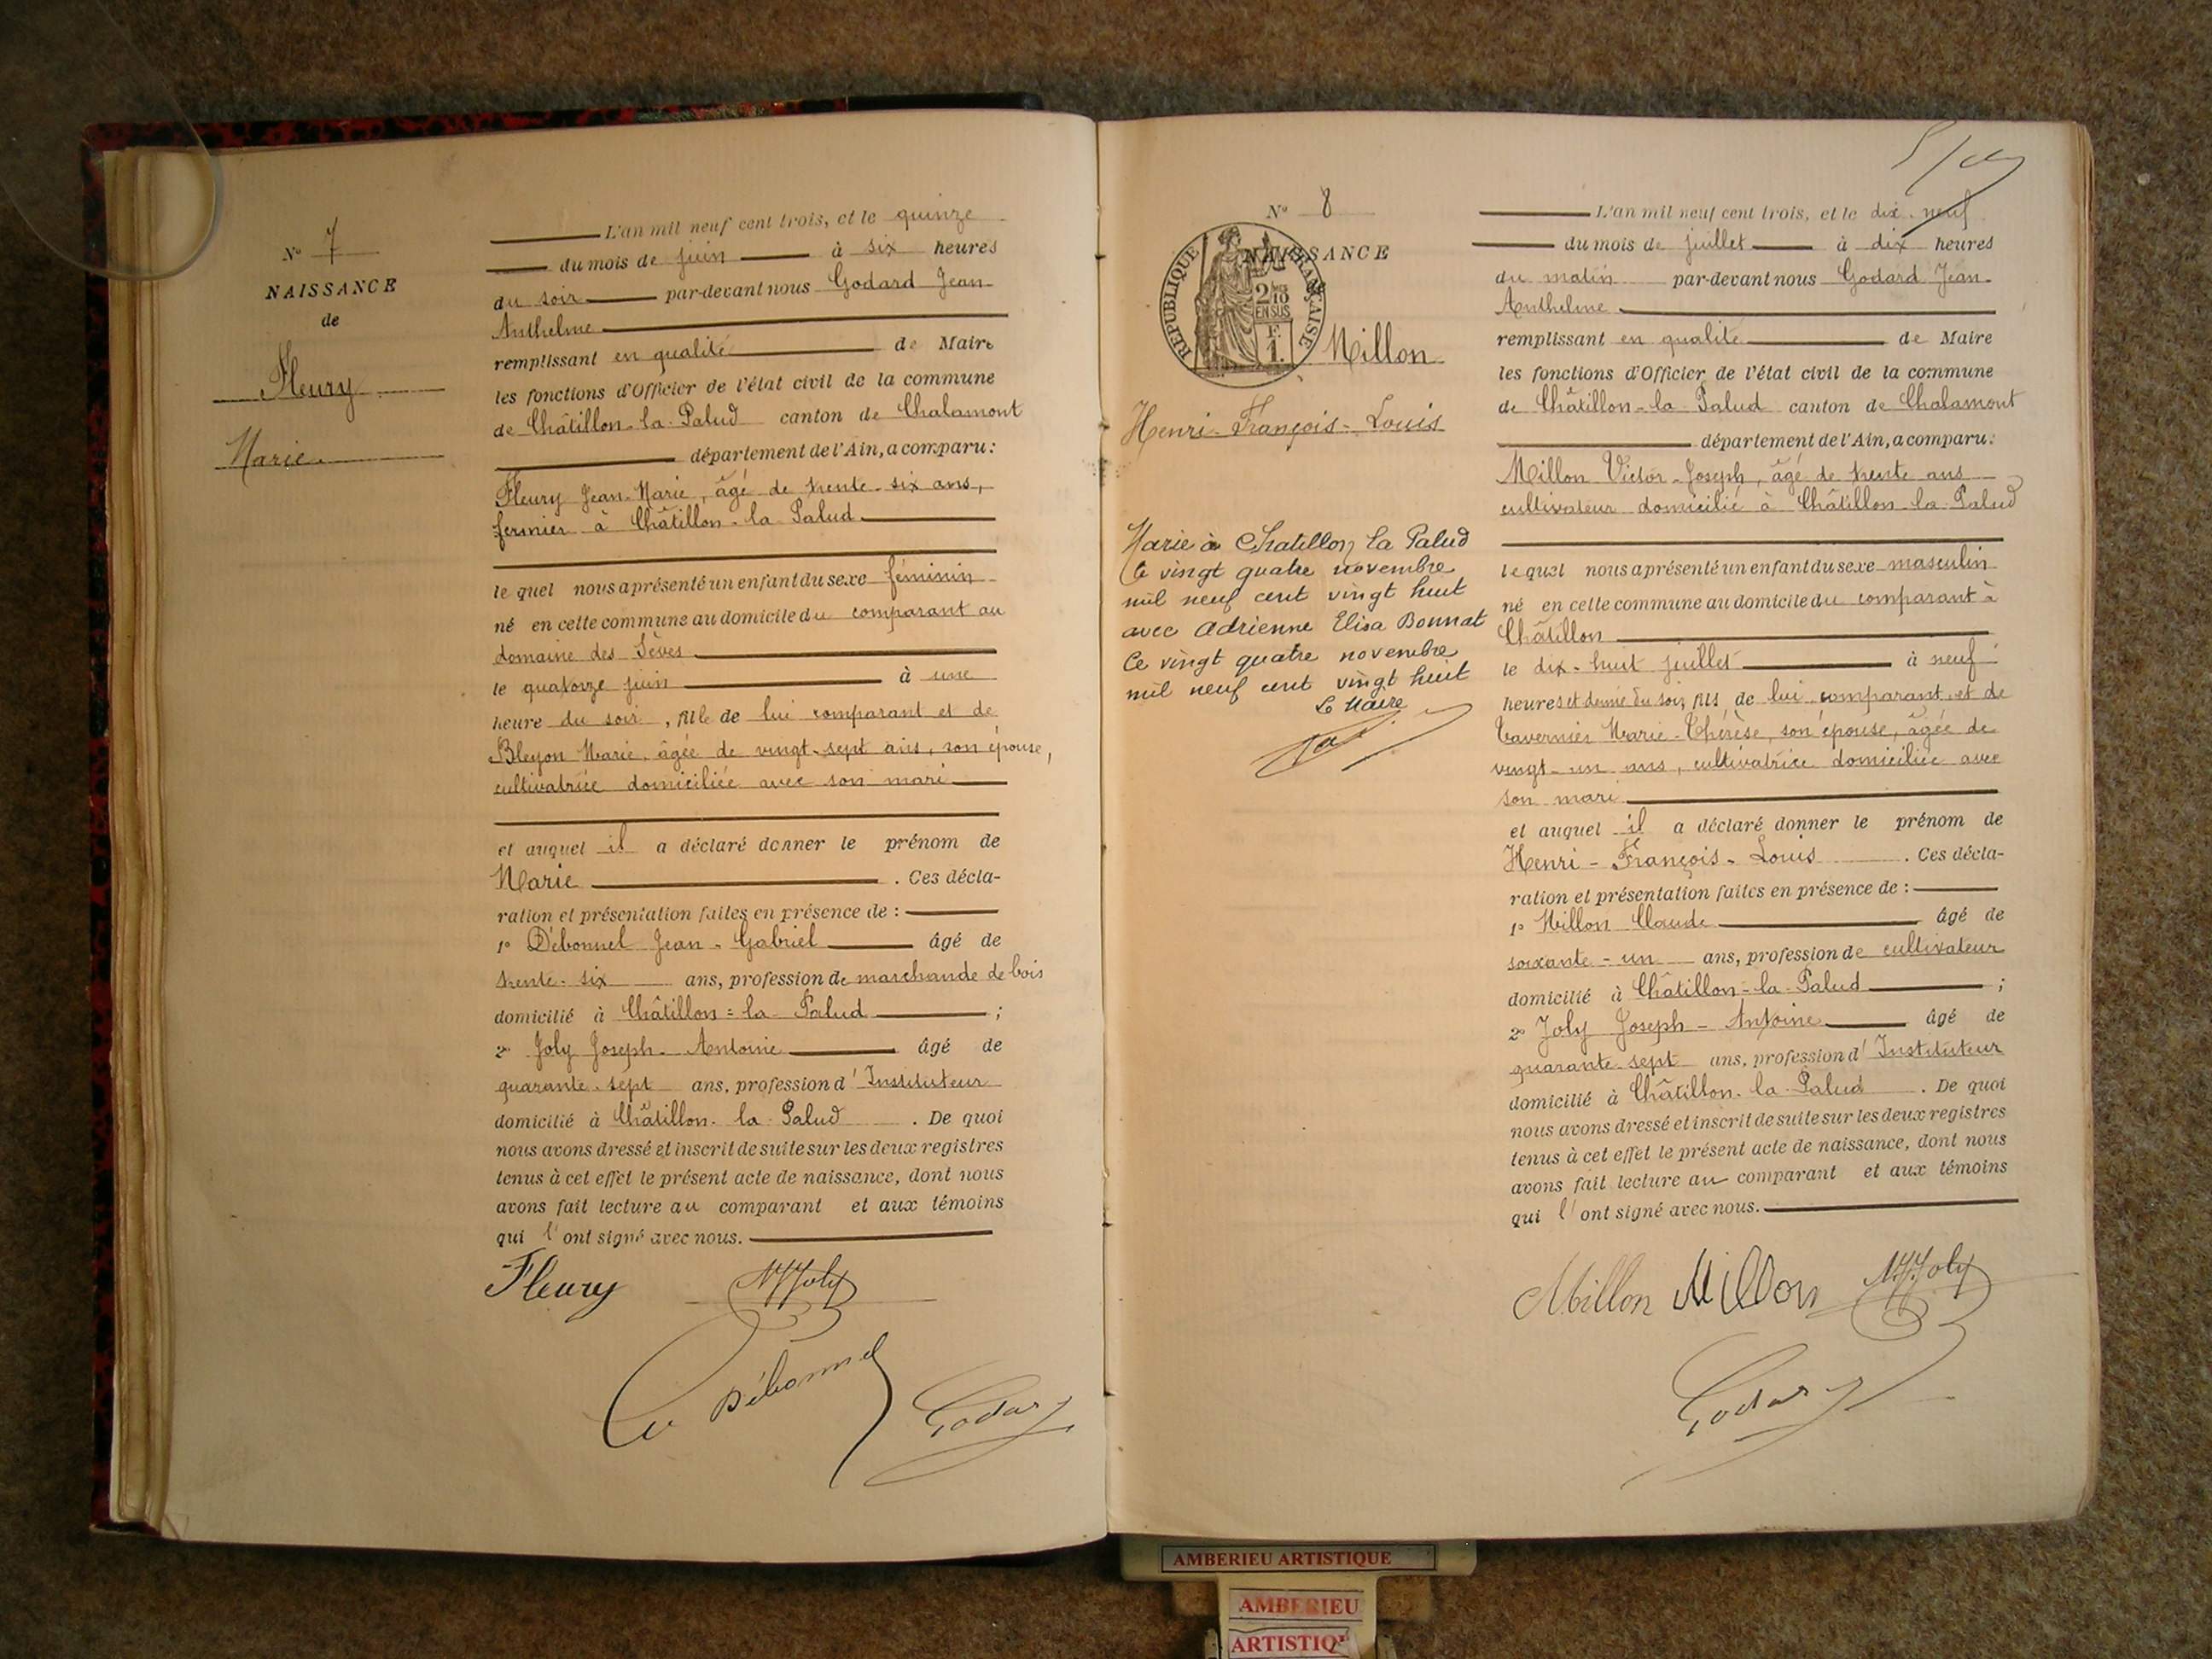 N° 7
NAISSANCE
de
Fleury
Marie
L'an mil neuf cent trois, et le quinze
du mois de juin à six heures
du soir par-devant nous Godard Jean
Anthelme
remplissant en qualité de Maire
les fonctions d'Officier de l'état civil de la commune
de Châtillon-la-Palud canton de Chalamont
département de l'Ain, a comparu:
Fleury Jean-Marie, âgé de trente-six ans,
fermier à Châtillon-la-Palud
le quel nous a présenté un enfant du sexe féminin
né en cette commune au domicile du comparant au
domaine des
le quatorze juin à une
heure du soir, fille de lui comparant et de
Bleyon Marie, âgée de vingt-sept ans, son épouse,
cultivatrice domiciliée avec son mari
et auquel il a déclaré donner le prénom de
Marie. Ces décla-
ration et présentation faites en présence de :
1° Débonnel Jean-Gabriel âgé de
trente-six ans, profession de marchande de bois
domicilié à Châtillon=la-Palud ;
2° Joly Joseph-Antoine âgé de
quarante-sept ans, profession d'Instituteur
domicilié à Châtillon-la-Palud. De quoi
nous avons dressé et inscrit de suite sur les deux registres
tenus à cet effet le présent acte de naissance, dont nous
avons fait lecture au comparant et aux témoins
qui l'ont signé avec nous.
Fleury Joly
Débonnel Godard
N° 8
NAISSANCE
RÉPUBLIQUE FRANÇAISE
2/10
EN SUS
F.
1.
Millon
Henri-François-Louis
Marié à Chatillon la Palud
le vingt quatre novembre
mil neuf cent vingt huit
avec Adrienne Elisa Bonnat
Ce vingt quatre novembre
mil neuf cent vingt huit
Le Maire
L'an mil neuf cent trois, et le dix-neuf
du mois de juillet à dix heures
du matin par-devant nous Godard Jean-
Anthelme
remplissant en qualité de Maire
les fonctions d'Officier de l'état civil de la commune
de Châtillon-la-Palud canton de Chalamont
département de l'Ain, a comparu:
Millon Victor-Joseph, âgé de trente ans
cultivateur domicilié à Châtillon-la-Palud
le quel nous a présenté un enfant du sexe masculin
né en cette commune au domicile du comparant à
Châtillon
le dix-huit juillet à neuf
heures et demie du soir, fils de lui comparant et de
Tavernier Marie-Thérèse, son épouse, âgée de
vingt-un ans, cultivatrice domiciliée avec
son mari
et auquel il a déclaré donner le prénom de
Henri-François-Louis. Ces décla-
ration et présentation faites en présence de :
1° Millon Claude âgé de
soixante-un ans, profession de cultivateur
domicilié à Châtillon-la-Palud ;
2° Joly Joseph-Antoine âgé de
quarante-sept ans, profession d'Instituteur
domicilié à Châtillon-la-Palud. De quoi
nous avons dressé et inscrit de suite sur les deux registres
tenus à cet effet le présent acte de naissance, dont nous
avons fait lecture au comparant et aux témoins
qui l'ont signé avec nous.
Millon Millon Joly
Godard
AMBERIEU ARTISTIQUE
AMBERIEU
ARTISTIQ